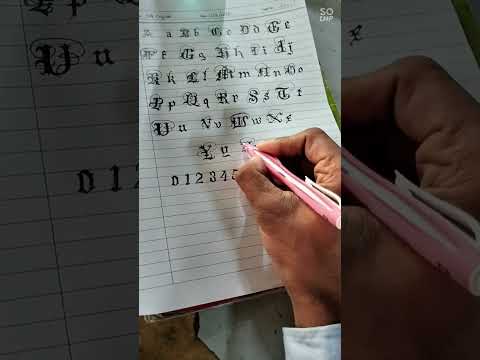 SO
EMP
a B b C c D d E e
F f G g H h I i J j
K k L l M m N n O o
P p Q q R r S s T t
U u V v W w X x
Y y
0 1 2 3 4 5